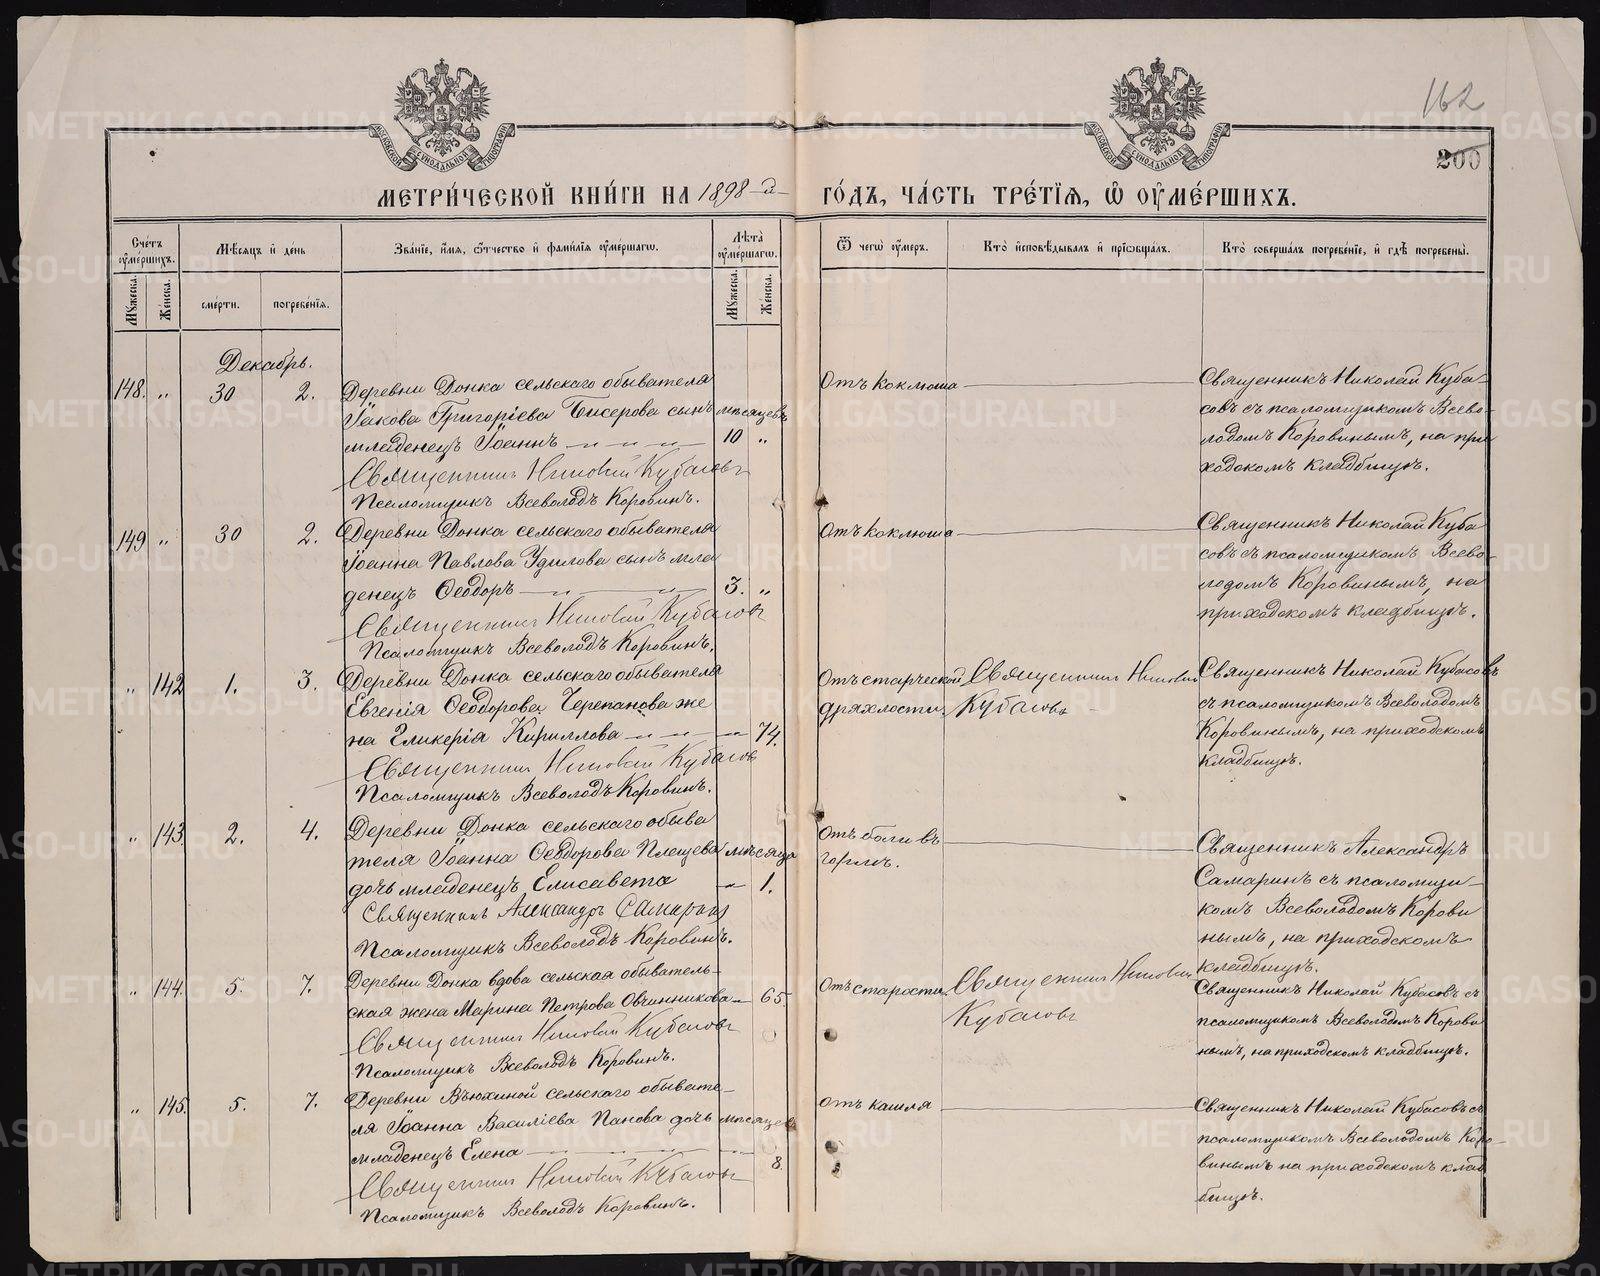 162
200
МОСКОВСКОЙ СѴНОДАЛЬНОЙ ТИПОГРАФІИ
МОСКОВСКОЙ СѴНОДАЛЬНОЙ ТИПОГРАФІИ
МЕТРИ́ЧЕСКОЙ КНИ́ГИ НА 1898-й ГО́ДЪ, ЧА́СТЬ ТРЕ́ТІЯ, Ѡ҆ ОУ҆МЕ́РШИХЪ.
Сче́тъ оу҆ме́ршихъ. Мѣсяцъ и҆ де́нь Зва́нїе, и҆мя, ѻ҆́тчество и҆ фами́лїя оу҆ме́ршагѡ. Лѣта̀ оу҆ме́ршагѡ. Ѿ чегѡ̀ оу҆́меръ. Кто̀ и҆сповѣ́дывалъ и҆ прїѡбща́лъ. Кто̀ соверша́лъ погребе́нїе, и҆ гдѣ̀ погребены̀.
Мꙋжеска. Же́нска. сме́рти. погребе́нїя. Мꙋжеска. Же́нска.
Декабрь.
148. „ 30 2. Деревни Донка сельскаго обывателя
Іакова Григоріева Бисерова сынъ мѣсяцевъ
младенецъ Іоаннъ — „ — „ — „ — 10 „
Священникъ Николай Кубасовъ
Псаломщикъ Всеволодъ Коровинъ.
Отъ коклюша
Священникъ Николай Куба-
совъ съ псаломщикомъ Всево-
лодомъ Коровинымъ, на при
ходскомъ кладбищѣ.
149 „ 30 2. Деревни Донка сельскаго обывателя
Іоанна Павлова Удилова сынъ мла
денецъ Ѳеодоръ — „ — „ — 3. „
Священникъ Николай Кубасовъ
Псаломщикъ Всеволодъ Коровинъ.
Отъ коклюша
Священникъ Николай Куба
совъ съ псаломщикомъ Всево-
лодомъ Коровинымъ, на
приходскомъ кладбищѣ.
„ 142 1. 3. Деревни Донка сельскаго обывателя
Евгенія Ѳеодорова Черепанова же
на Гликерія Кириллова — „ — „ — „ — 74.
Священникъ Николай Кубасовъ
Псаломщикъ Всеволодъ Коровинъ.
Отъ старческой
дряхлости.
Священникъ Николай
Кубасовъ
Священникъ Николай Кубасовъ
съ псаломщикомъ Всеволодомъ
Коровинымъ, на приходскомъ
кладбищѣ.
„ 143. 2. 4. Деревни Донка сельскаго обыва
теля Іоанна Ѳеодорова Плещева мѣсяца
дочь младенецъ Елисавета — „ — 1.
Священникъ Александръ Самаринъ
Псаломщикъ Всеволодъ Коровинъ.
Отъ боли въ
горлѣ.
Священникъ Александръ
Самаринъ съ псаломщи-
комъ Всеволодомъ Корови
нымъ, на приходскомъ
кладбищѣ.
„ 144. 5. 7. Деревни Донка вдова сельская обыватель-
ская жена Марина Петрова Овчинникова — 65
Священникъ Николай Кубасовъ
Псаломщикъ Всеволодъ Коровинъ.
Отъ старости.
Священникъ Николай
Кубасовъ
Священникъ Николай Кубасовъ съ
псаломщикомъ Всеволодомъ Корови
нымъ, на приходскомъ кладбищѣ.
„ 145. 5. 7. Деревни Вьюхиной сельскаго обывате-
ля Іоанна Василіева Панова дочь мѣсяцевъ
младенецъ Елена — „ — „ — 8.
Священникъ Николай Кубасовъ
Псаломщикъ Всеволодъ Коровинъ.
Отъ кашля
Священникъ Николай Кубасовъ съ
псаломщикомъ Всеволодомъ Коро-
винымъ на приходскомъ клад
бищѣ.
METRIKI.GASO-URAL.RU